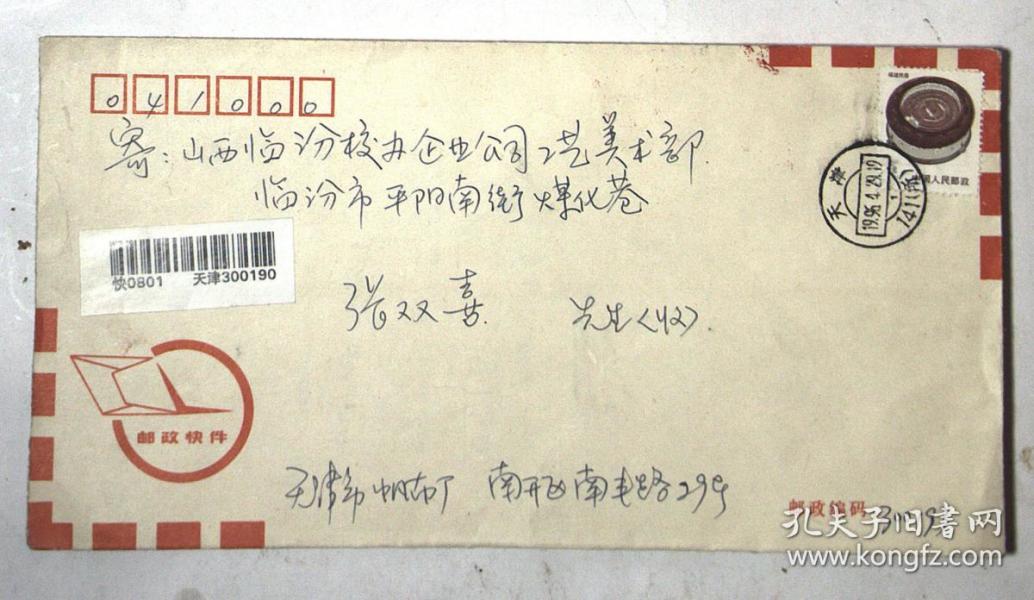 041000
福建民居
寄：山西临汾校办企业公司工艺美术部.
临汾市平阳南街煤化巷
中国人民邮政
天津
1996.4.29.19
141(支)
快0801 天津300190
张双喜. 先生〈收〉.
邮政快件
天津市帆布厂 南开区南丰路29号
邮政编码
孔夫子旧書网
www.kongfz.com